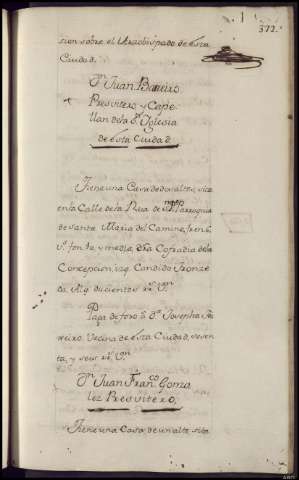 372.
sion sobre el Arzobispado de esta
Ciudad.
Dn. Juan
Presvitero y Cape-
llan de la Sta. Iglesia
de esta Ciudad
Tiene una Casa de un alto, sita
en la Calle de la Rua de Parroquia
de Santa Maria del Camino,
y media, Cofradia de la
Concepcion, Candido Gonze
Alq. ducientos rs. vn.
Paga de foro á Da. Josepha
Vecina de esta Ciudad, sesen-
ta, y seis rs. vn.
Dn. Juan Franco. Gonza
lez Presvitero,
Tiene una Casa de un alto sita